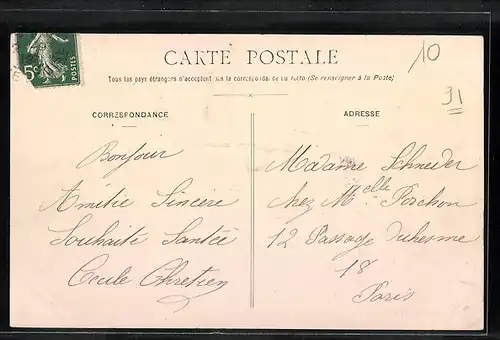 5c
POSTES
CARTE POSTALE
10
Tous les pays étrangers n'acceptent pas la correspondance au recto (Se renseigner à la Poste)
31
CORRESPONDANCE
Bonjour
Amitié Sincère
Souhaite Santée
Cecile Chretien
ADRESSE
Madame Schneider
chez Melle Porchon
12 Passage Duhesme
18
Paris